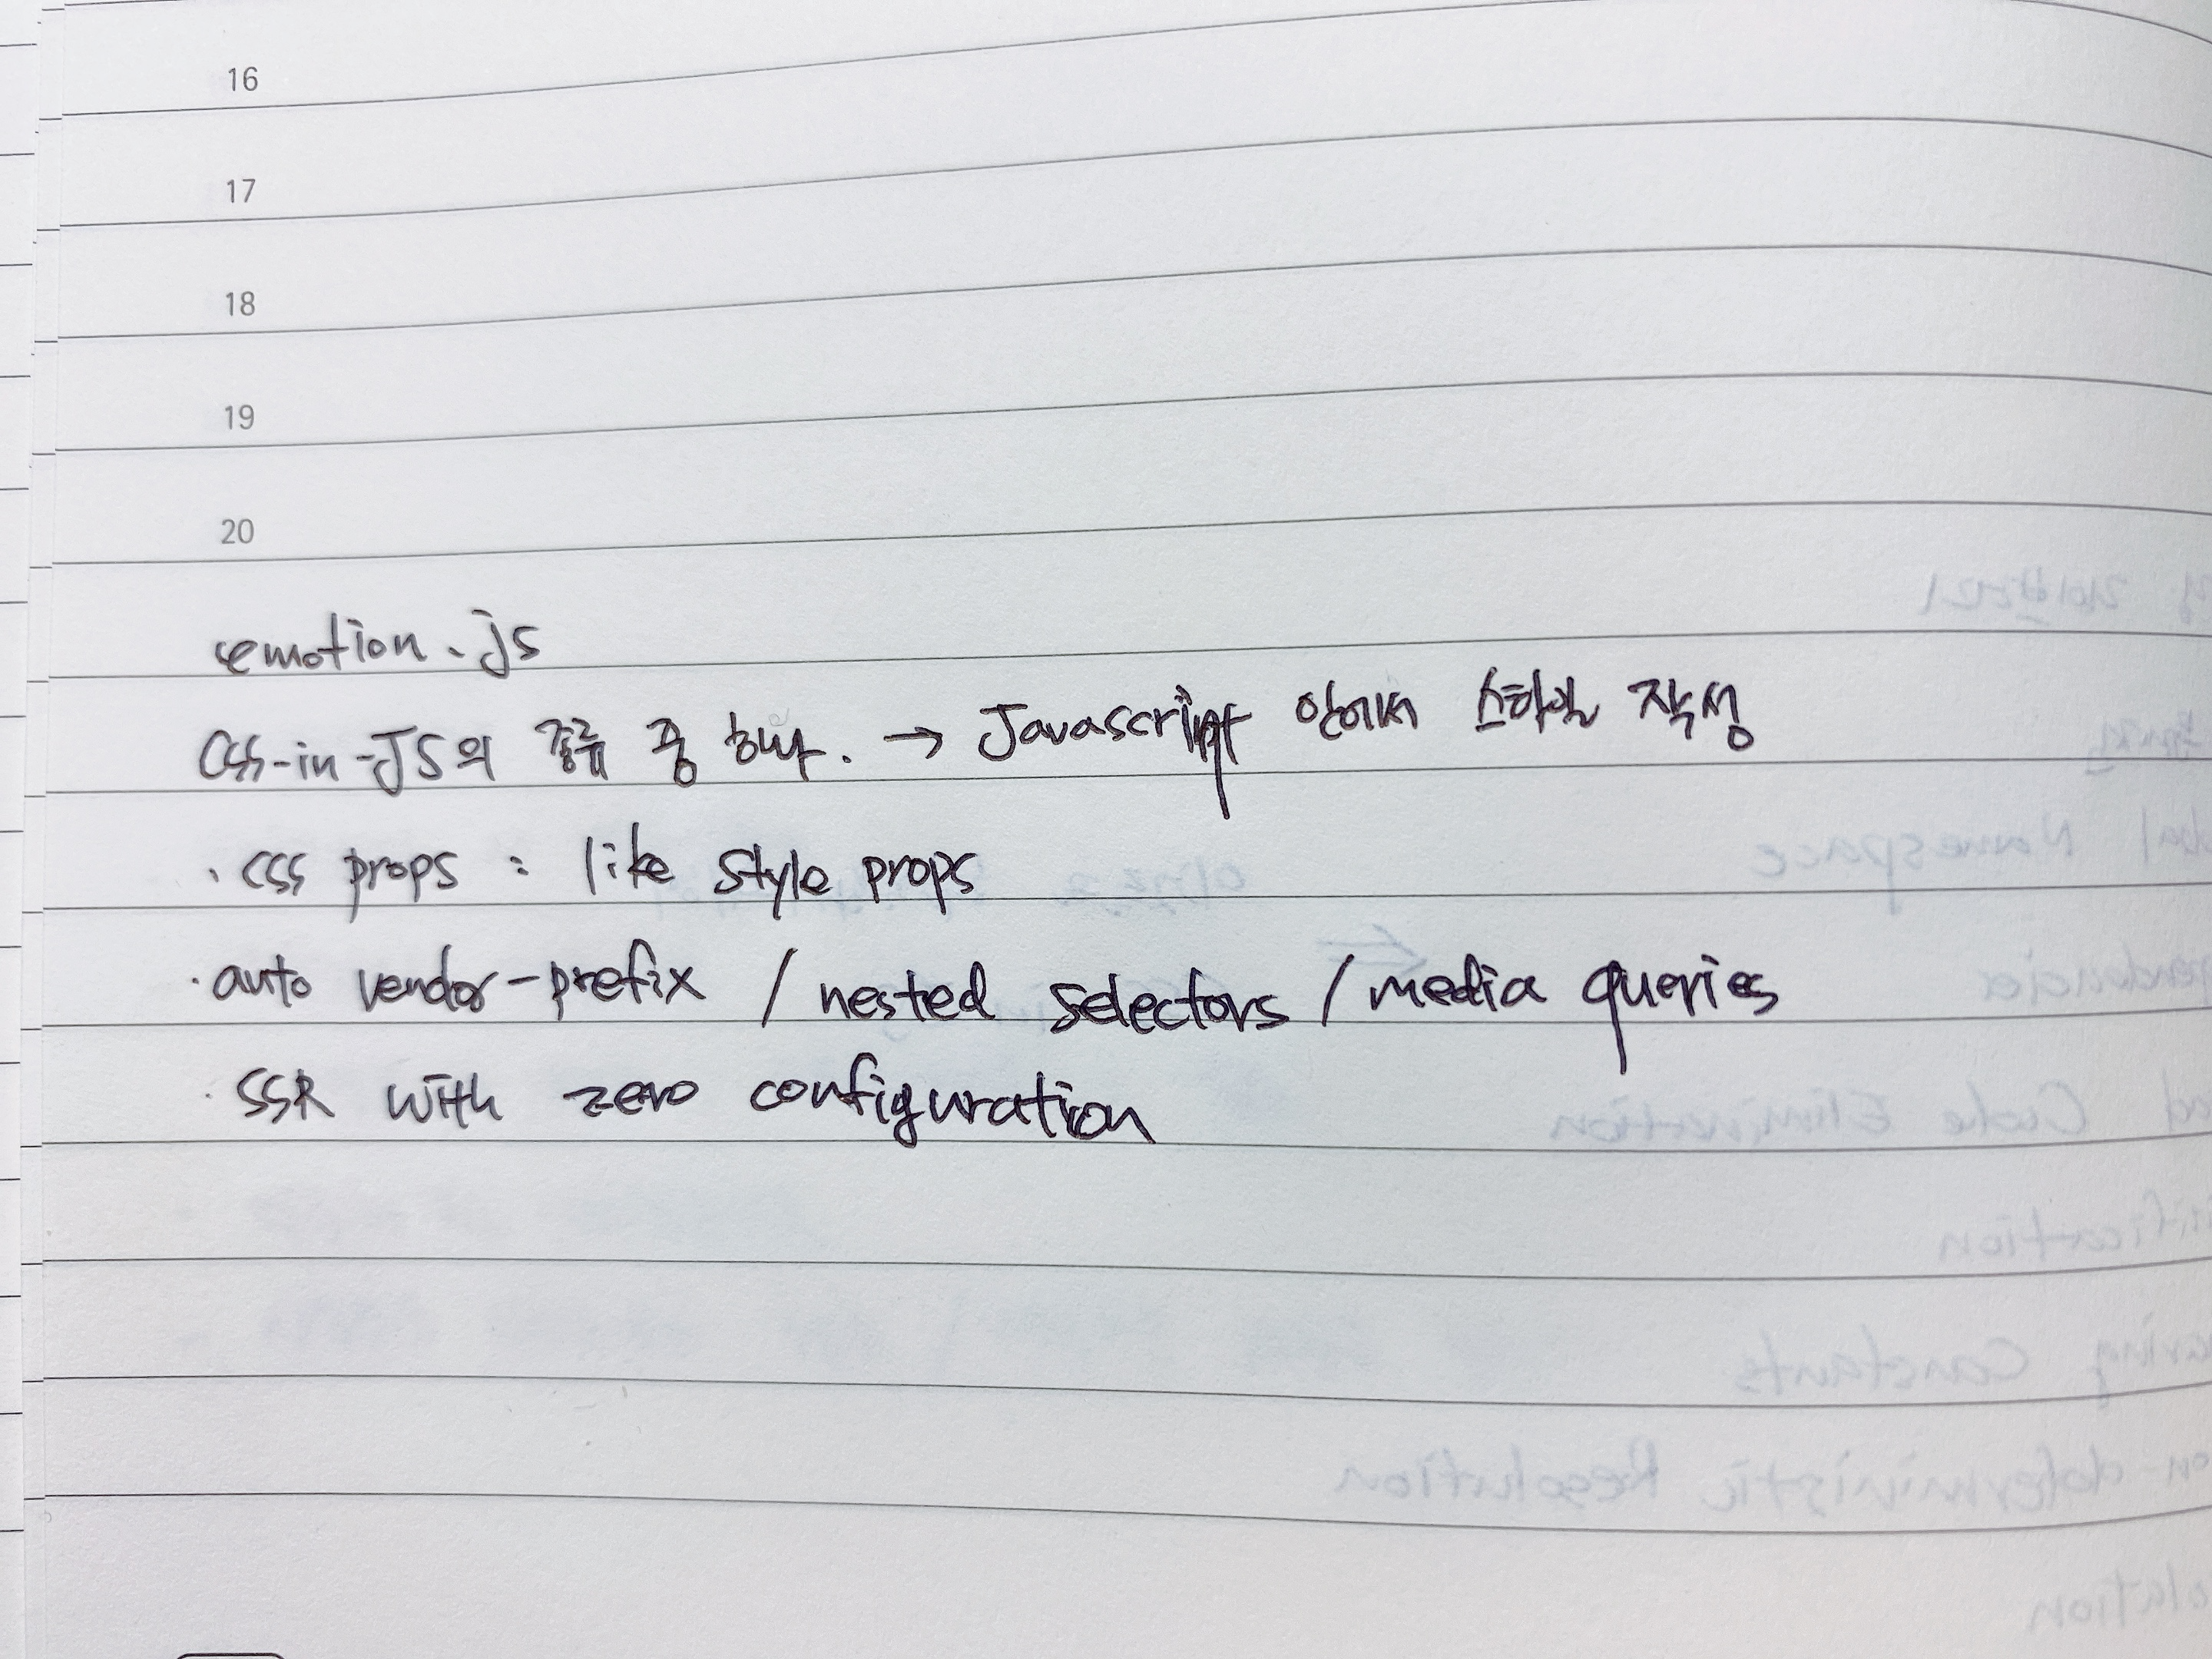 16
17
18
19
20
emotion.js
CSS-in-JS의 종류 중 하나. → Javascript 안에서 스타일 작성
· CSS props : like style props
· auto vendor-prefix / nested selectors / media queries
· SSR with zero configuration